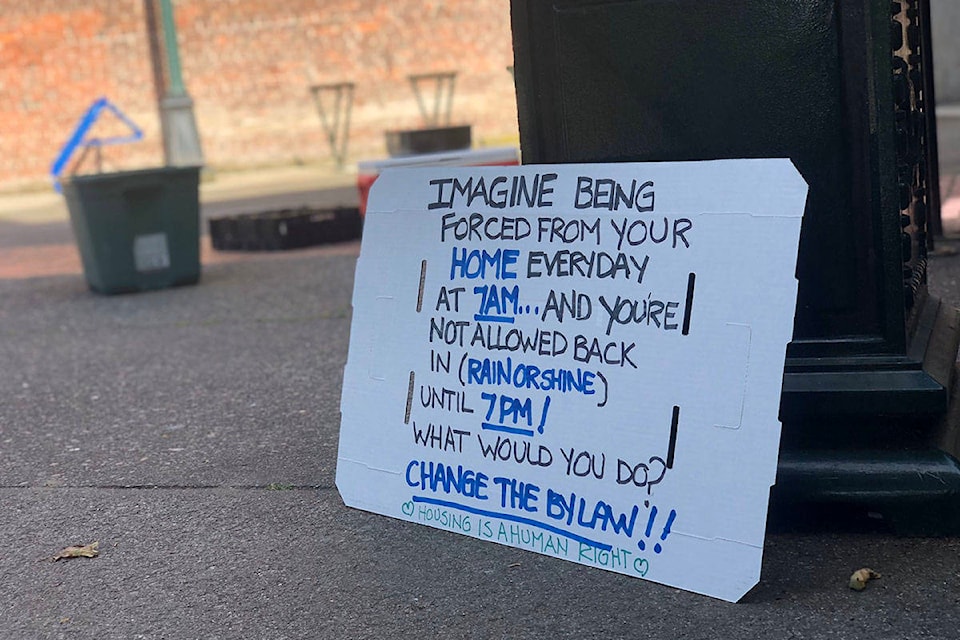 IMAGINE BEING
FORCED FROM YOUR
HOME EVERYDAY
AT 7AM... AND YOU'RE
NOT ALLOWED BACK
IN (RAIN OR SHINE)
UNTIL 7PM!
WHAT WOULD YOU DO?
CHANGE THE BYLAW!!
♡ HOUSING IS A HUMAN RIGHT ♡